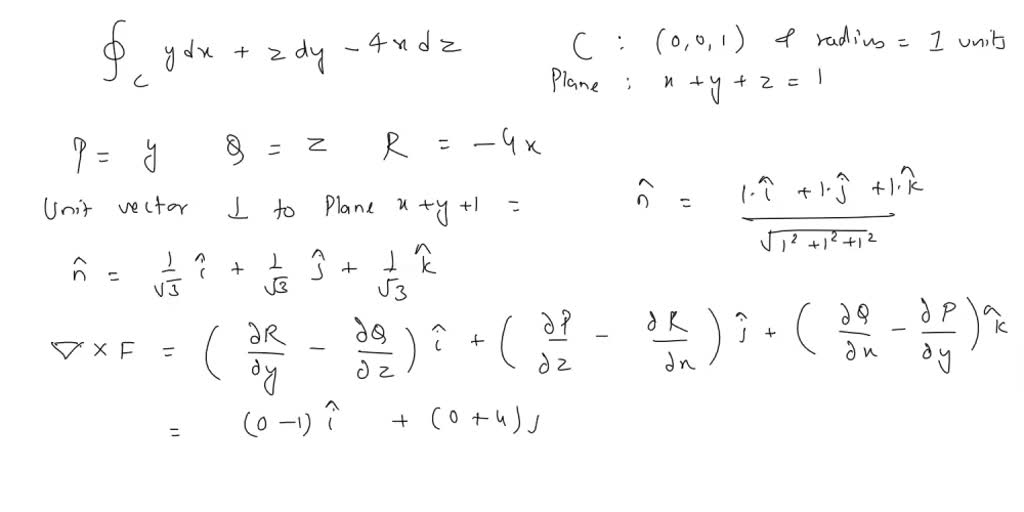 ∮_C y dx + z dy − 4x dz
C : (0,0,1) & radius = 1 units
Plane : x + y + z = 1
P = y Q = z R = −4x
Unit vector ⊥ to Plane x + y + 1 =
n̂ = (1·î + 1·ĵ + 1·k̂) / √(1² + 1² + 1²)
n̂ = 1/√3 î + 1/√3 ĵ + 1/√3 k̂
∇ × F = (∂R/∂y − ∂Q/∂z) î + (∂P/∂z − ∂R/∂x) ĵ + (∂Q/∂x − ∂P/∂y) k̂
= (0 − 1) î + (0 + 4) j